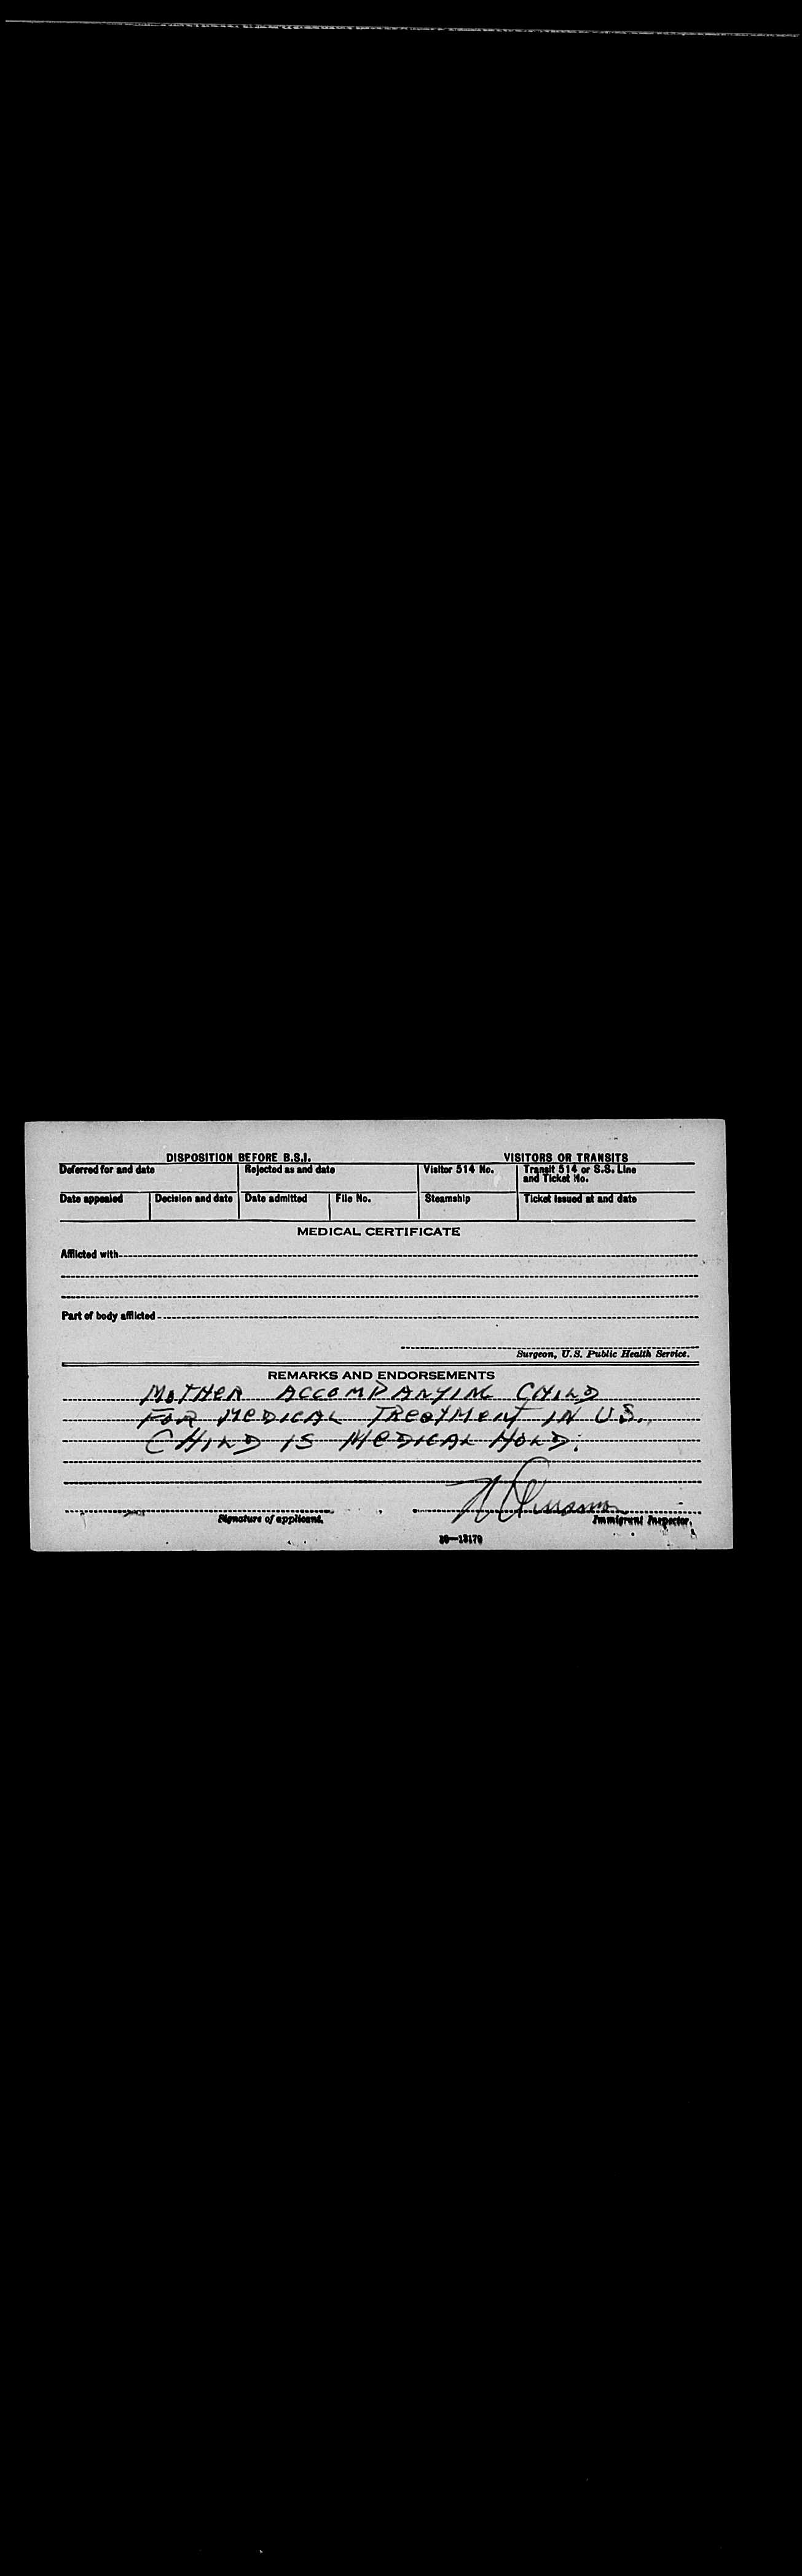 DISPOSITION BEFORE B.S.I. VISITORS OR TRANSITS
Deferred for and date Rejected as and date Visitor 514 No. Transit 514 or S.S. Line
and Ticket No.
Date appealed Decision and date Date admitted File No. Steamship Ticket issued at and date
MEDICAL CERTIFICATE
Afflicted with
Part of body afflicted
Surgeon, U.S. Public Health Service.
REMARKS AND ENDORSEMENTS
MOTHER ACCOMPANYING CHILD
FOR MEDICAL TREATMENT IN U.S.
CHILD IS MEDICAL HOLD.
Signature of applicant. Immigrant Inspector.
16—13179